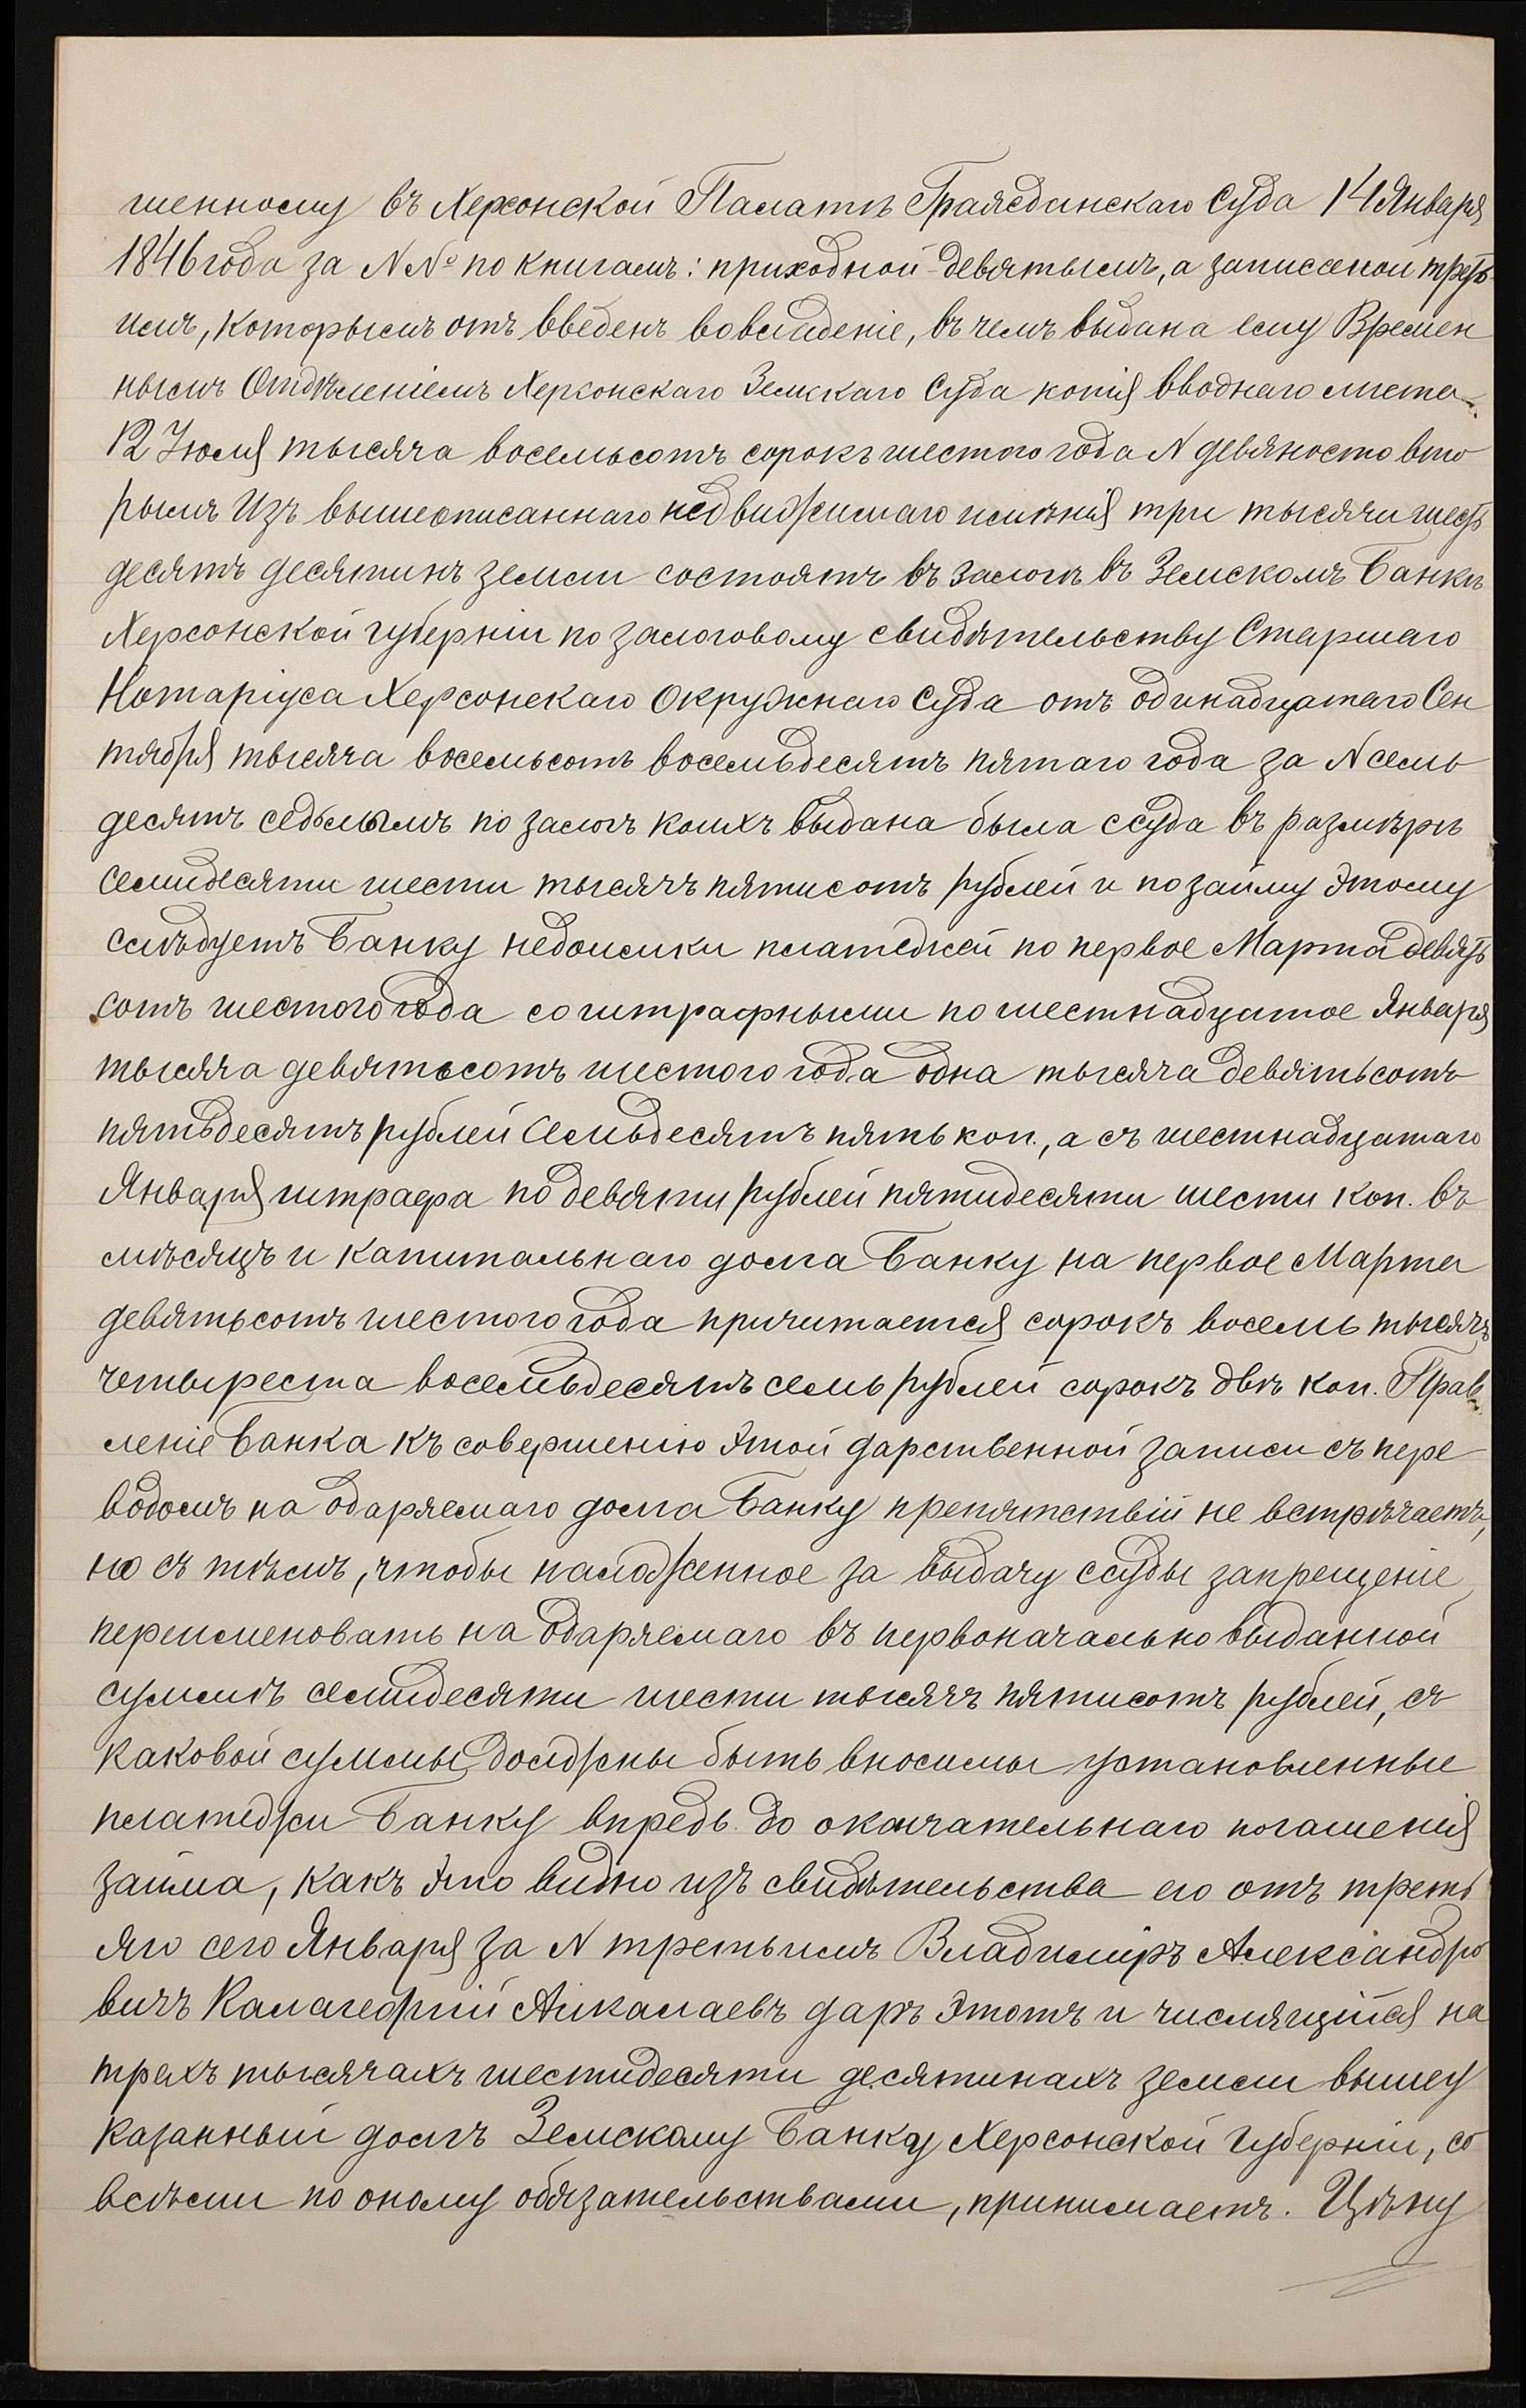 шенному въ Херсонской Палатѣ Гражданскаго Суда 14 Января
1846 года за N№ по книгамъ: приходной девятымъ, а записной треть
имъ, которымъ отъ введенъ во владеніе, въ чемъ выдана ему Времен
нымъ Отдѣленіемъ Херсонскаго Земскаго Суда копія вводнаго листа
12 Іюля тысяча восемьсотъ сорокъ шестого года N девяносто вто
рымъ Изъ вышеописаннаго недвижимаго имѣнія три тысячи шесть
десятъ десятинъ земли состоятъ въ залогѣ въ Земскомъ Банкѣ
Херсонской губерніи по залоговому свидѣтельству Старшаго
Нотаріуса Херсонскаго Окружнаго Суда отъ одинадцатаго Сен
тября тысяча восемьсотъ восемьдесятъ пятаго года за N семь
десятъ седьмымъ по залогъ коихъ выдана была ссуда въ размѣрѣ
семидесяти шести тысячъ пятисотъ рублей и по займу этому
слѣдуетъ Банку недоимки платежей по первое Марта девять
сотъ шестого года со штрафными по шестнадцатое Января
тысяча девятьсотъ шестого года одна тысяча девятьсотъ
пятьдесятъ рублей Семьдесятъ пять коп., а съ шестнадцатаго
Января штрафа по девяти рублей пятидесяти шести коп. въ
мѣсяцъ и капитальнаго долга Банку на первое Марта
девятьсотъ шестого года причитается сорокъ восемь тысячъ
четыреста восемьдесятъ семь рублей сорокъ двѣ коп. Прав
леніе Банка къ совершенію этой дарственной записи съ пере
водомъ на одаряемаго долга Банку препятствій не встрѣчаетъ,
но съ тѣмъ, чтобы наложенное за выдачу ссуды запрещеніе
переименовать на одаряемаго въ первоначально выданной
суммѣ семидесяти шести тысячъ пятисотъ рублей, съ
каковой суммы должны быть вносимы установленные
платежи Банку впредь до окончательнаго погашенія
займа, какъ это видно изъ свидѣтельства его отъ треть
яго сего Января за N третьимъ Владиміръ Александро
вичъ Калагеоргій Алкалаевъ даръ этотъ и числящійся на
трехъ тысячахъ шестидесяти десятинахъ земли вышеу
казанный долгъ Земскому Банку Херсонской Губерніи, со
всѣми по оному обязательствами, принимаетъ. Цѣну